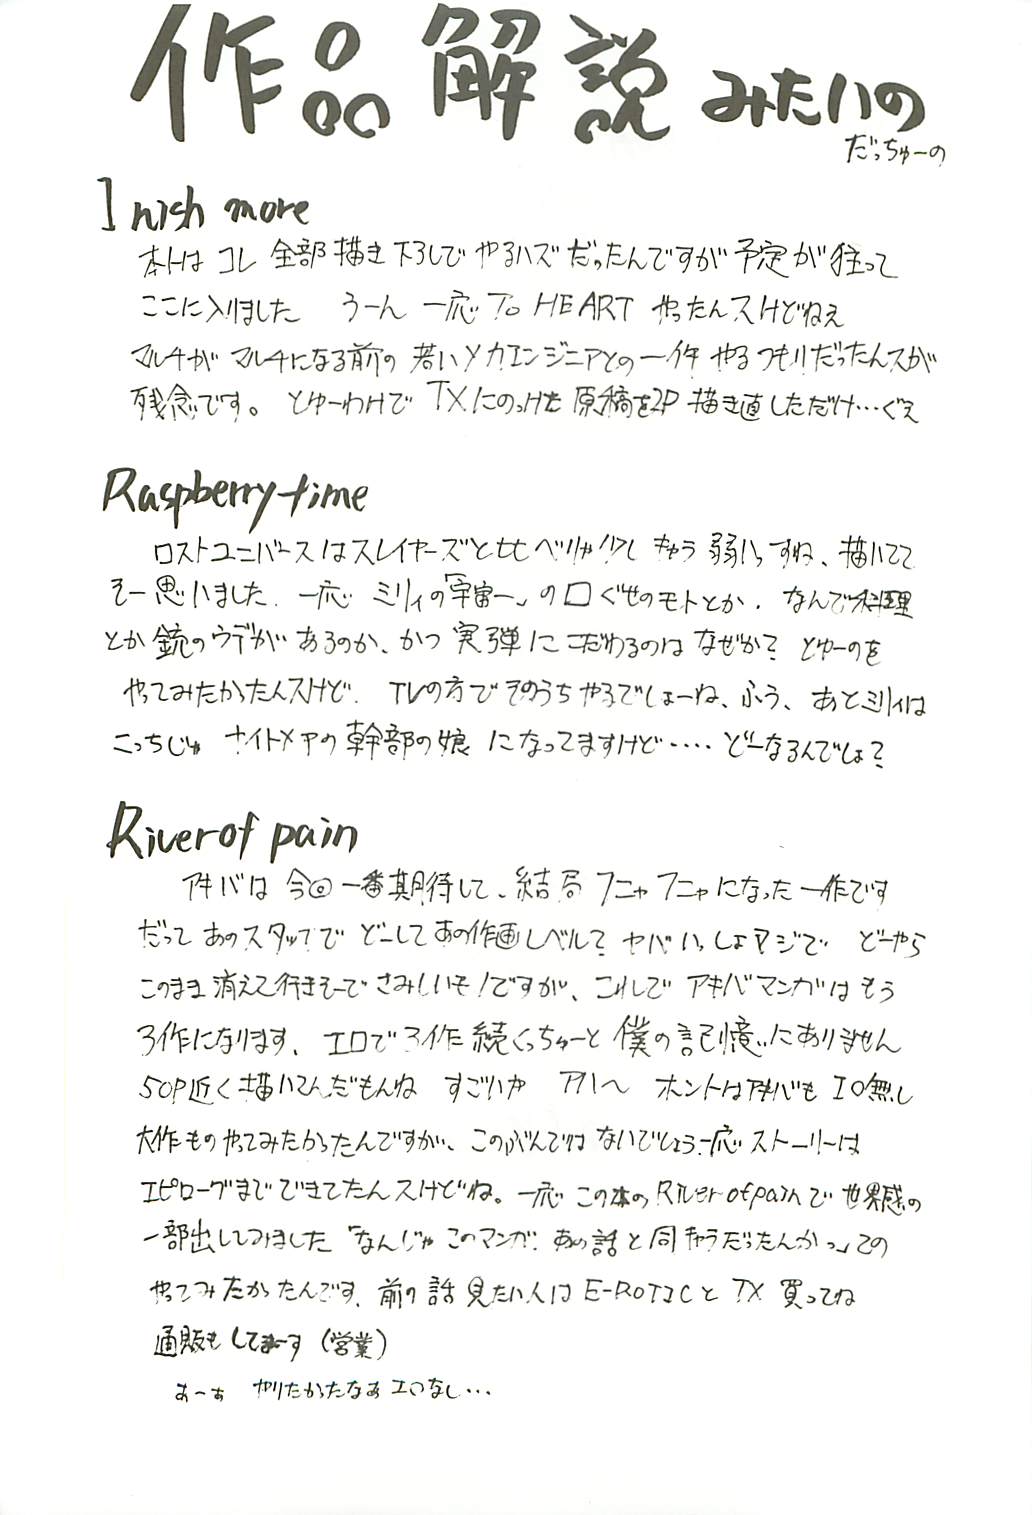 作品解説 みたいの
だっちゅーの
I wish more
本トは コレ 全部 描き下ろしで やるハズだったんですが 予定が狂って
ここに入りました うーん 一応 To HEART やったんスけどねぇ
マルチが マルチになる前の 若いメカエンジニアとの一件 やるつもりだったんスが
残念です。 とゆーわけで TXにのっけた 原稿を2P 描き直しただけ…ぐえ
Raspberry time
ロストユニバースはスレイヤーズと比べりゃ少し キャラ弱いっすね、描いてて
そー思いました. 一応 ミリィの「宇宙一」の口ぐせのモトとか. なんで料理
とか 銃のウデがあるのか、かつ 実弾に こだわるのは なぜか? とゆーのを
やってみたかったんスけど. TVの方で そのうち やるでしょーね、ふう、あとミリィは
こっちじゃ ナイトメアの幹部の娘 になってますけど‥‥ どーなるんでしょ?
River of pain
アキバは 今回一番期待して、結局 フニャフニャになった一作です
だって あのスタッフで どーしてあの作画レベル? ヤバいっしょマジで どーやら
このまま 消えて行きそーで さみしいそ!ですが、これで アキバマンガは もう
3作になります、 エロで3作 続くっちゅーと 僕の記憶にありません
50P近く描いてんだもんね すごいや アハハ ホントはアキバも エロ無し
大作ものやってみたかったんですが、このぶんでは ないでしょう.一応 ストーリーは
エピローグまで できてたんスけどね。一応 この本の River of painで 世界感の
一部出してみました 「なんじゃ このマンガ. あの話と同キャラだったんかっ」ての
やってみたかったんです. 前の話 見たい人は E-ROTIC と TX 買ってね
通販も してまーす (営業)
あーぁ やりたかったなぁ エロなし…